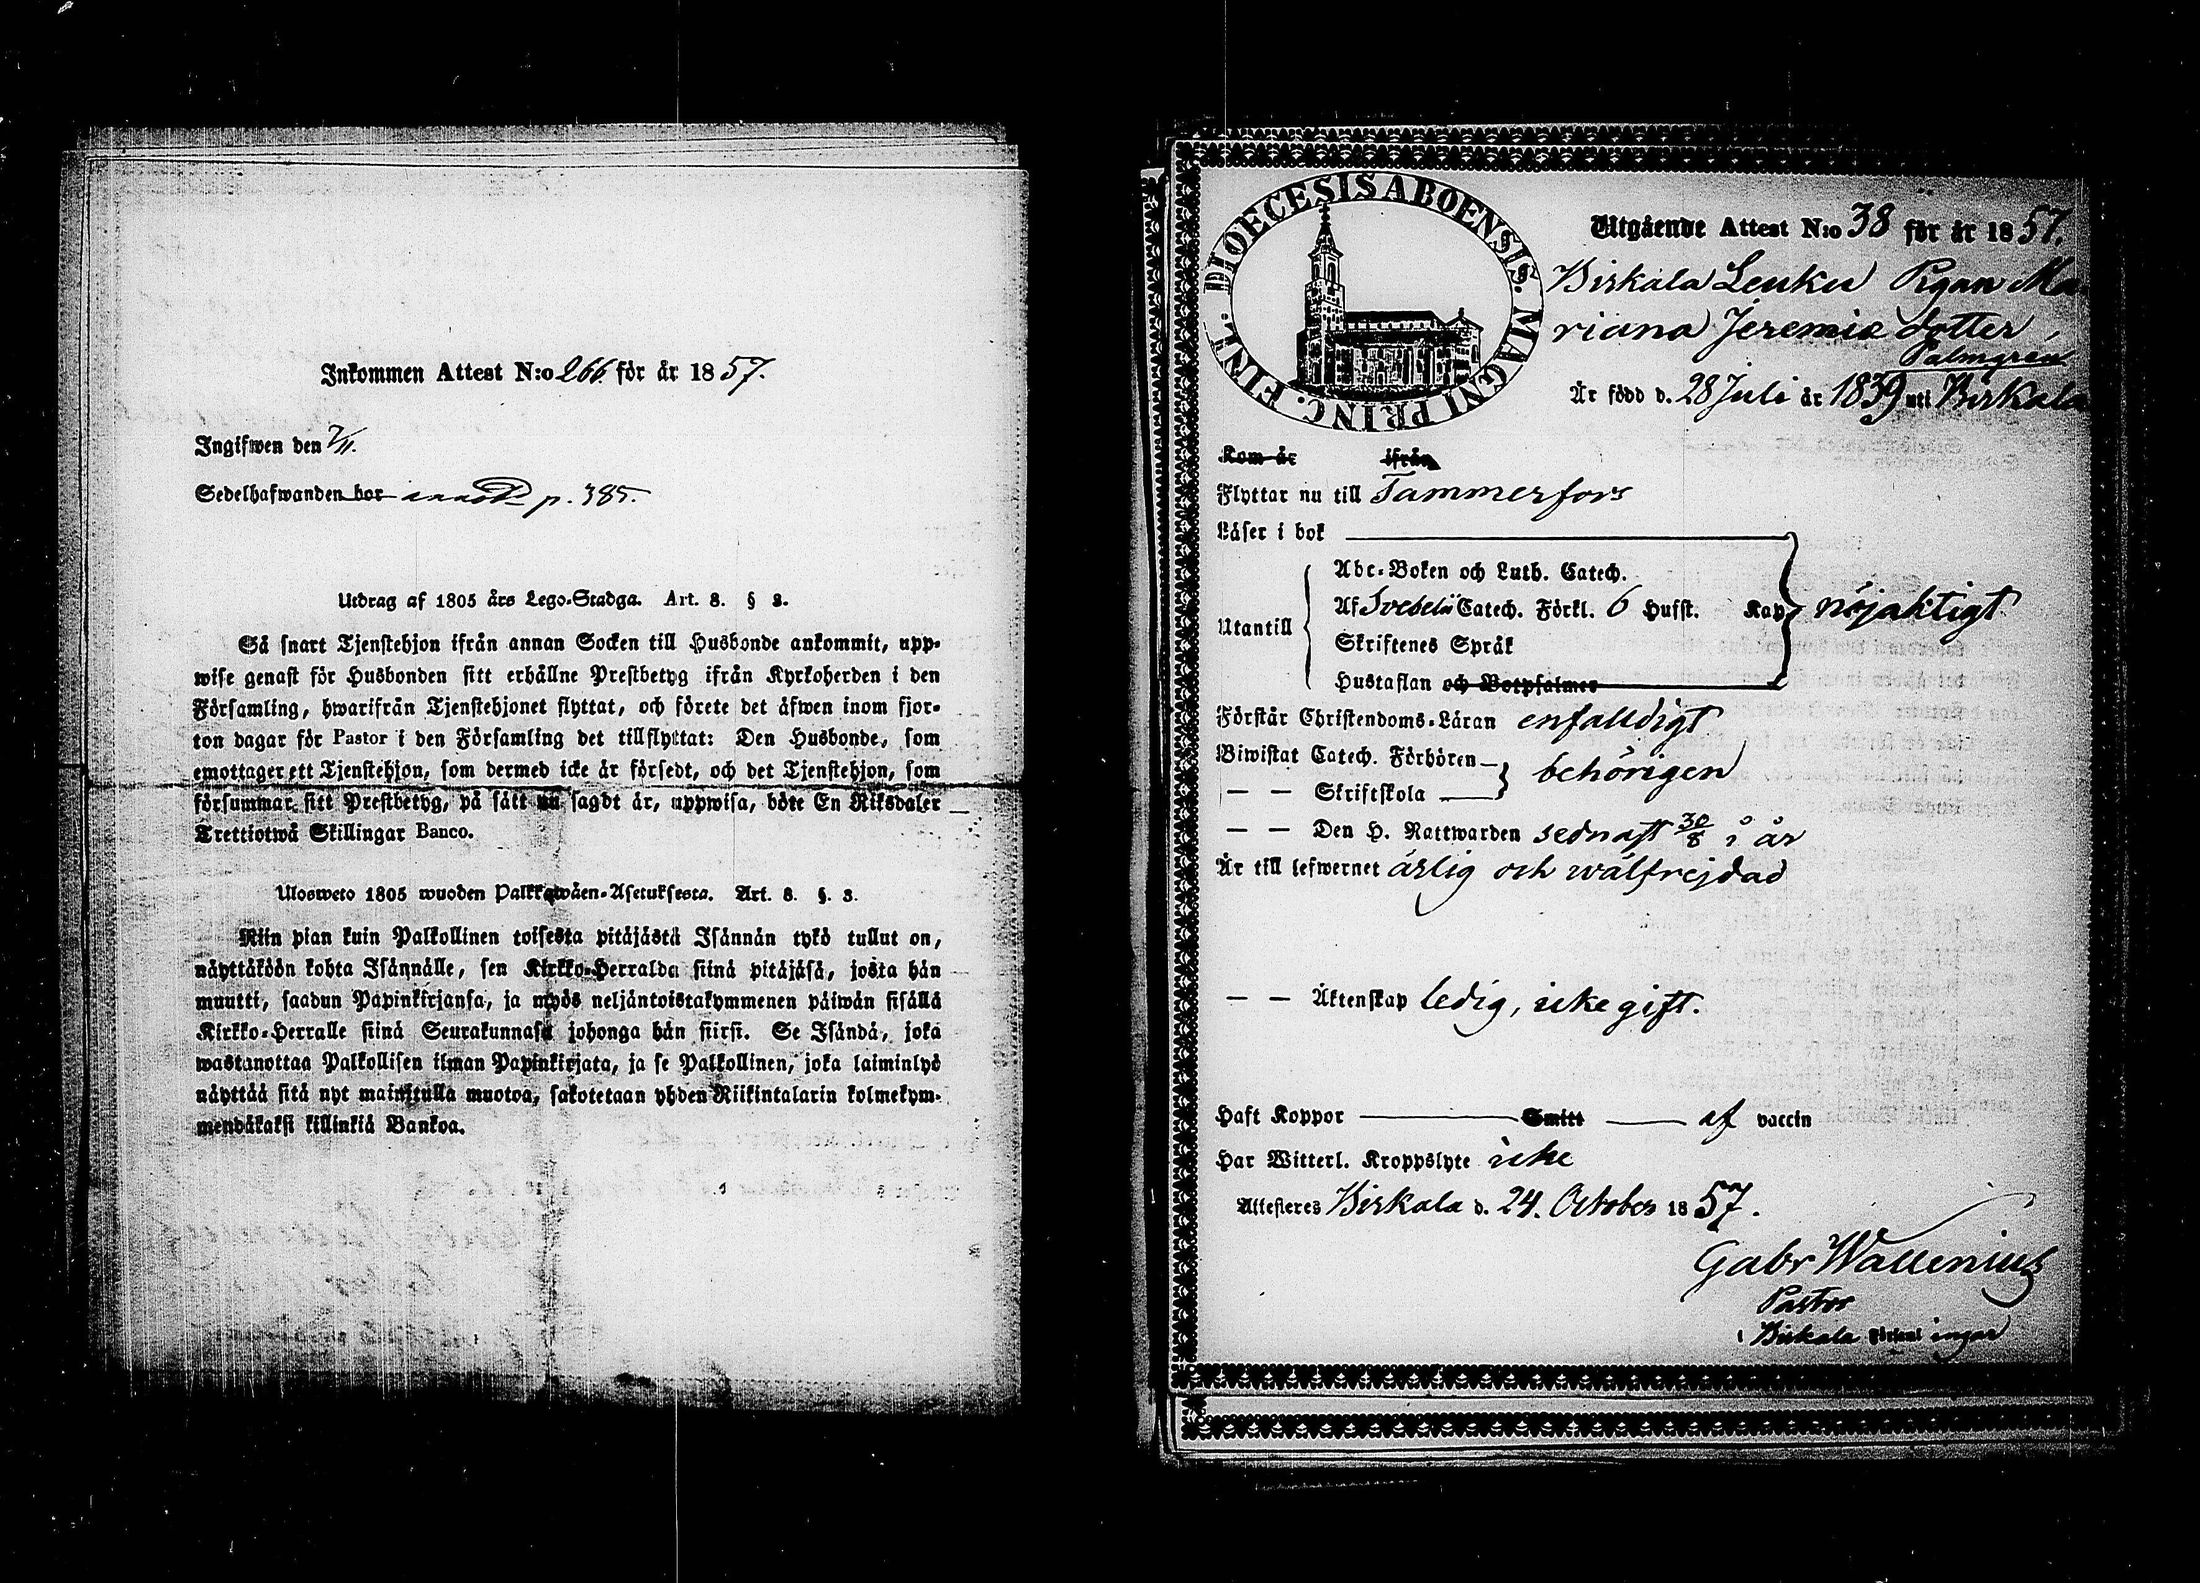 Inkommen Attest N:o 266. för år 1857.
Ingifwen den 7/11.
Sedelhafwanden bor p. 385.
Utdrag af 1805 års Lego-Stadga. Art. 8. § 3.
Så snart Tjenstehjon ifrån annan Socken till Husbonde ankommit, upp-
wise genast för Husbonden sitt erhållne Prestbetyg ifrån Kyrkoherden i den
Församling, hwarifrån Tjenstehjonet flyttat, och förete det äfwen inom fjor-
ton dagar för Pastor i den Församling det tillflyttat: Den Husbonde, som
emottager ett Tjenstehjon, som dermed icke är försedt, och det Tjenstehjon, som
försummar sitt Prestbetyg, på sätt nu sagdt är, uppwisa, böte En Riksdaler
Trettiotwå Skillingar Banco.
Ulosweto 1805 wuoden Palkkawäen-Asetuksesta. Art. 8. §. 3.
Niin pian kuin Palkollinen toisesta pitäjästä Isännän tykö tullut on,
näyttäköön kohta Isännälle, sen Kirkko-Herralda siinä pitäjäsä, josta hän
muutti, saadun Papinkirjansa, ja myös neljäntoistakymmenen päiwän sisällä
Kirkko-Herralle siinä Seurakunnasa johonga hän siirsi. Se Isändä, joka
wastanottaa Palkollisen ilman Papinkirjata, ja se Palkollinen, joka laiminlyö
näyttää sitä nyt mainitulla muotoa, sakotetaan yhden Riikintalarin kolmekym-
mendäkaksi killinkiä Bankoa.
DIOECESIS ABOENSIS. MAGNI PRINC. FINL.
Utgående Attest N:o 38 för år 1857.
Birkala Pigan Ma
riana Jeremie dotter
Palmgren
Är född d. 28 Juli år 1839 uti Birkala
Kom år ifrån
Flyttar nu till Tammerfors
Läser i bok
Abc-Boken och Luth. Catech.
Af Svebelii Catech. Förkl. 6 Hufst. Kap. nöjaktigt
Utantill
Skriftenes Språk
Hustaflan och Botpsalmer
Förstår Christendoms-Läran enfaldigt
Biwistat Catech. Förhören behörigen
— — Skriftskola
— — Den H. Nattwarden sednast 30/8 i år
Är till lefwernet ärlig och wälfrejdad
— — Äktenskap ledig, icke gift.
Haft Koppor Smitt af vaccin
Har Witterl. Kroppslyte icke
Attesteres Birkala d. 24. October 1857.
Gabr Wallenius
Pastor
i Birkala Församlingar